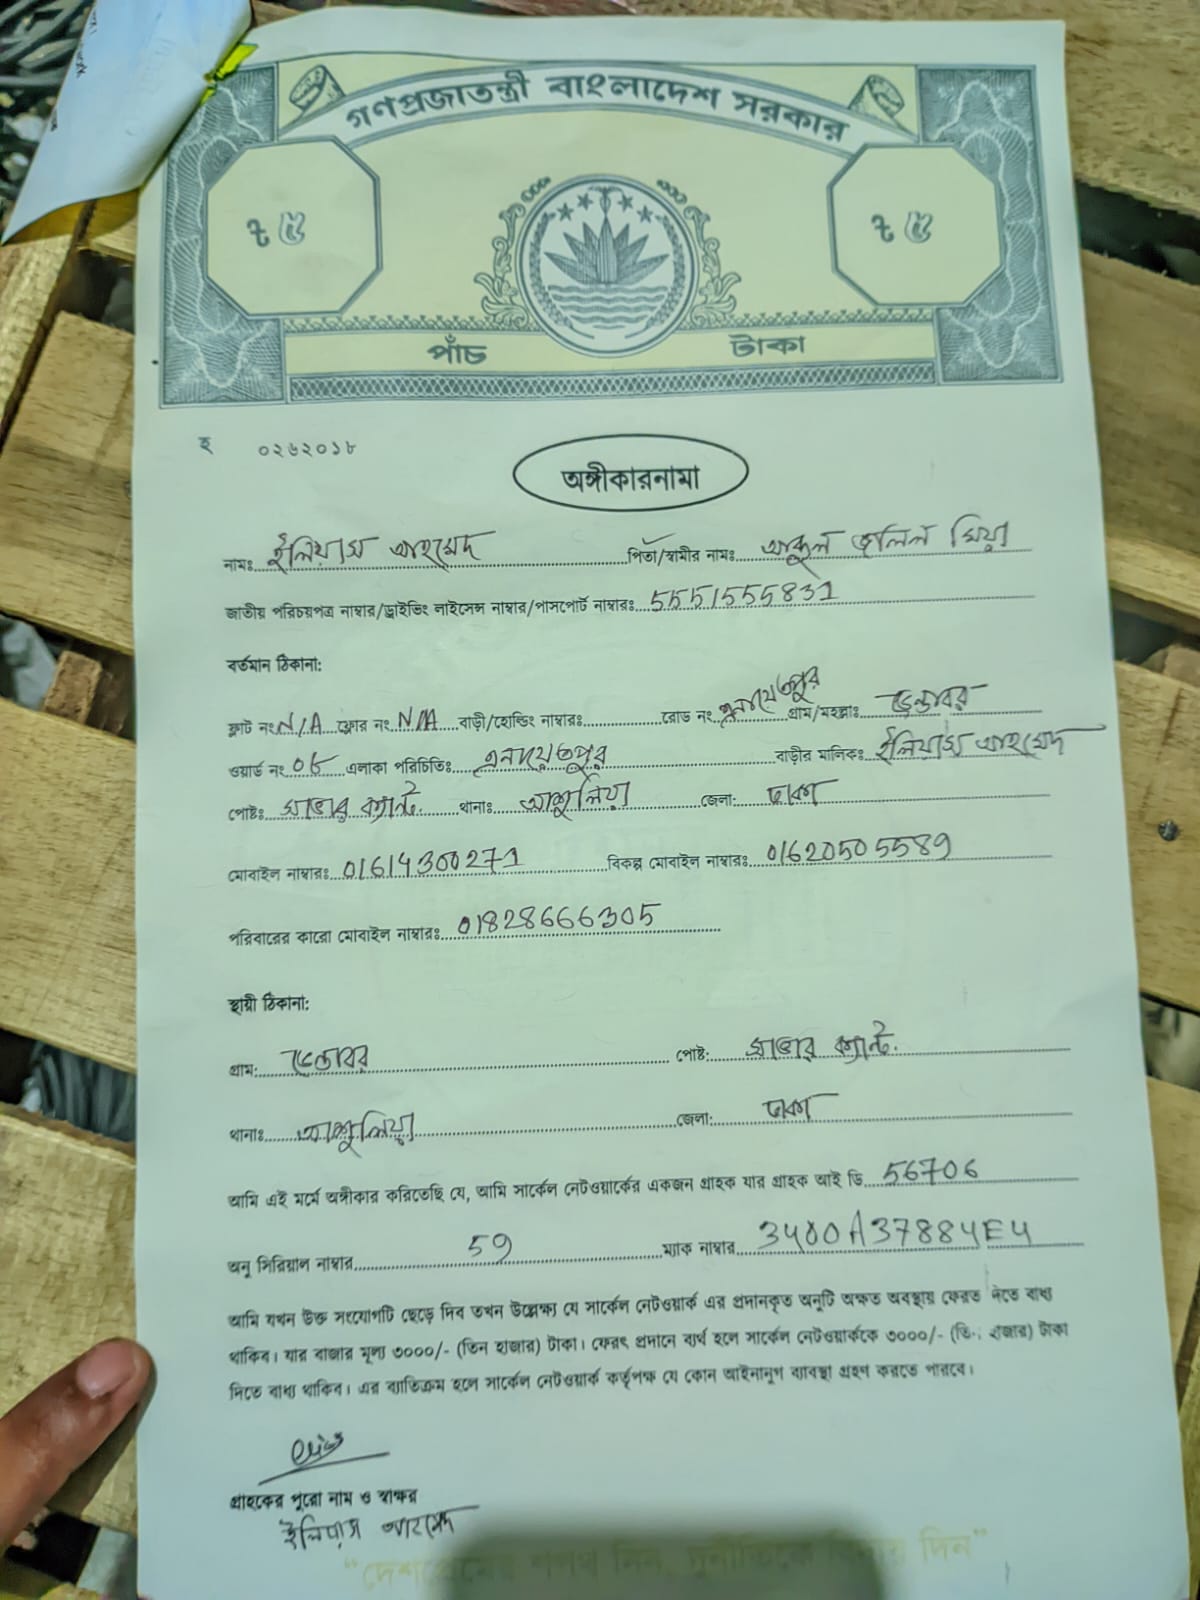 গণপ্রজাতন্ত্রী বাংলাদেশ সরকার
৳ ৫ ৳ ৫
পাঁচ টাকা
হ ০২৬২০১৮
অঙ্গীকারনামা
নামঃ ইলিয়াস আহমেদ পিতা/স্বামীর নামঃ আব্দুল জলিল মিয়া
জাতীয় পরিচয়পত্র নাম্বার/ড্রাইভিং লাইসেন্স নাম্বার/পাসপোর্ট নাম্বারঃ 5551555831
বর্তমান ঠিকানা:
ফ্লাট নং N/A ফ্লোর নং N/A বাড়ী/হোল্ডিং নাম্বারঃ রোড নং এনায়েতপুর গ্রাম/মহল্লাঃ ভেন্ডাবর
ওয়ার্ড নং 05 এলাকা পরিচিতিঃ এনায়েতপুর বাড়ীর মালিকঃ ইলিয়াস আহমেদ
পোষ্টঃ সাভার ক্যান্ট. থানাঃ আশুলিয়া জেলা: ঢাকা
মোবাইল নাম্বারঃ 01614300271 বিকল্প মোবাইল নাম্বারঃ 01620505589
পরিবারের কারো মোবাইল নাম্বারঃ 01828666305
স্থায়ী ঠিকানা:
গ্রাম: ভেন্ডাবর পোষ্ট: সাভার ক্যান্ট.
থানাঃ আশুলিয়া জেলা: ঢাকা
আমি এই মর্মে অঙ্গীকার করিতেছি যে, আমি সার্কেল নেটওয়ার্কের একজন গ্রাহক যার গ্রাহক আই ডি 56706
অনু সিরিয়াল নাম্বার 59 ম্যাক নাম্বার 3400A37884E4
আমি যখন উক্ত সংযোগটি ছেড়ে দিব তখন উল্লেক্ষ্য যে সার্কেল নেটওয়ার্ক এর প্রদানকৃত অনুটি অক্ষত অবস্থায় ফেরত দিতে বাধ্য
থাকিব। যার বাজার মূল্য ৩০০০/- (তিন হাজার) টাকা। ফেরৎ প্রদানে ব্যর্থ হলে সার্কেল নেটওয়ার্ককে ৩০০০/- (তিন হাজার) টাকা
দিতে বাধ্য থাকিব। এর ব্যাতিক্রম হলে সার্কেল নেটওয়ার্ক কর্তৃপক্ষ যে কোন আইনানুগ ব্যাবস্থা গ্রহণ করতে পারবে।
গ্রাহকের পুরো নাম ও স্বাক্ষর
ইলিয়াস আহমেদ
"দেশপ্রেমের শপথ নিন, দুর্নীতিকে বিদায় দিন"